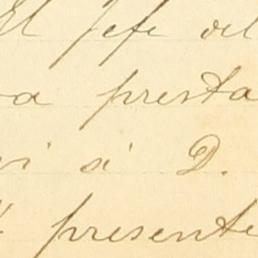 El Jefe del
va presta
si á D.
presente